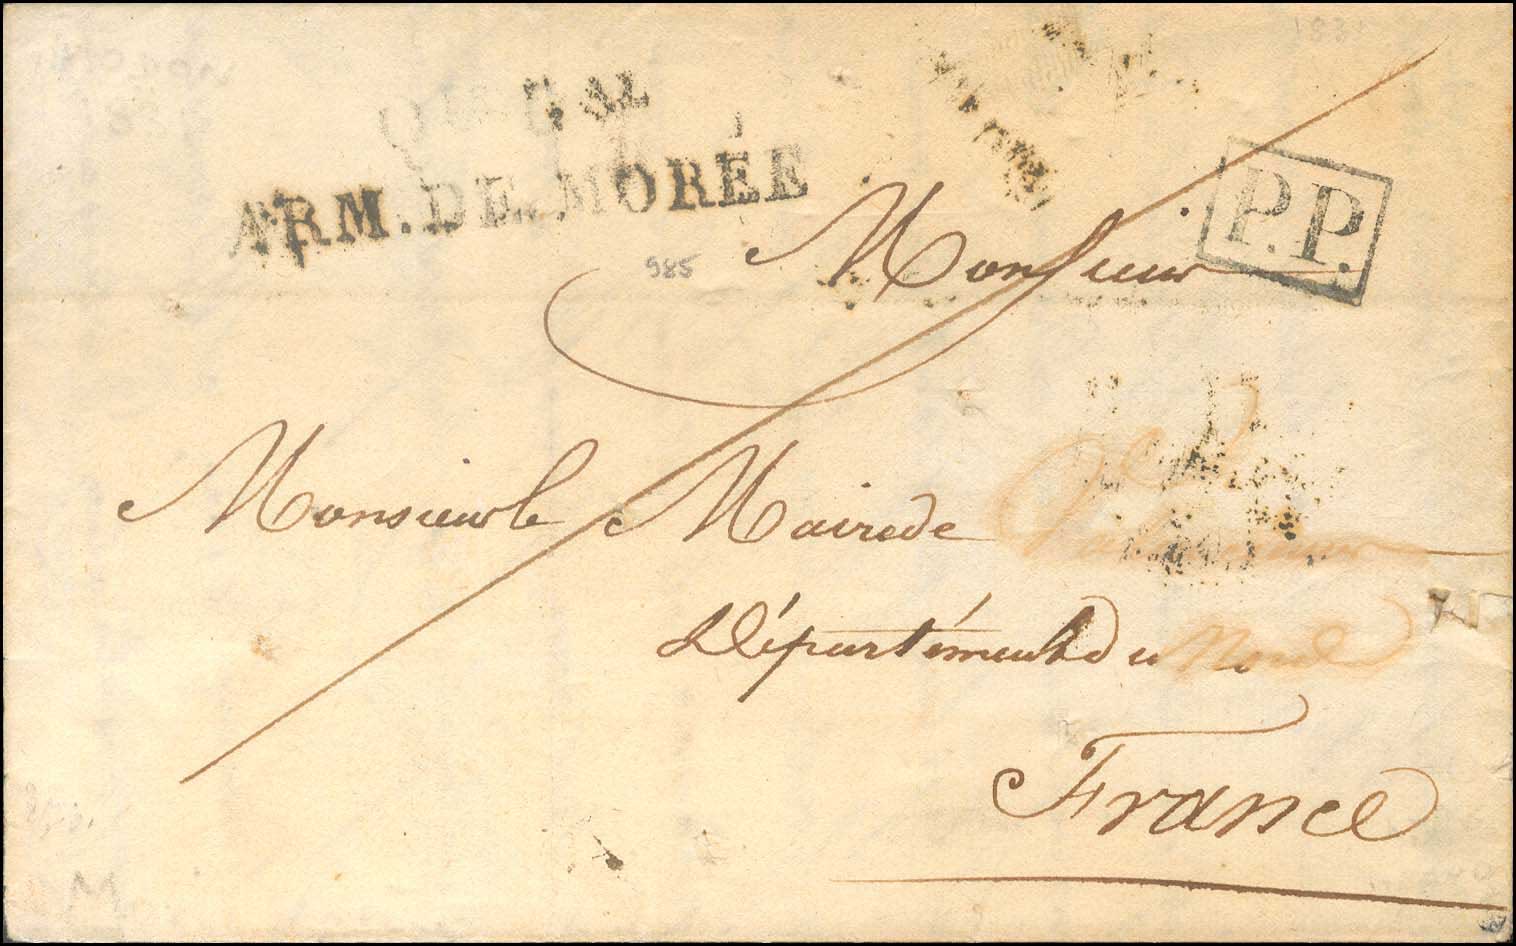 Qer Gal
ARM. DE MORÉE
P.P.
985
Monsieur
Monsieur le Maire de
Département du Nord
France